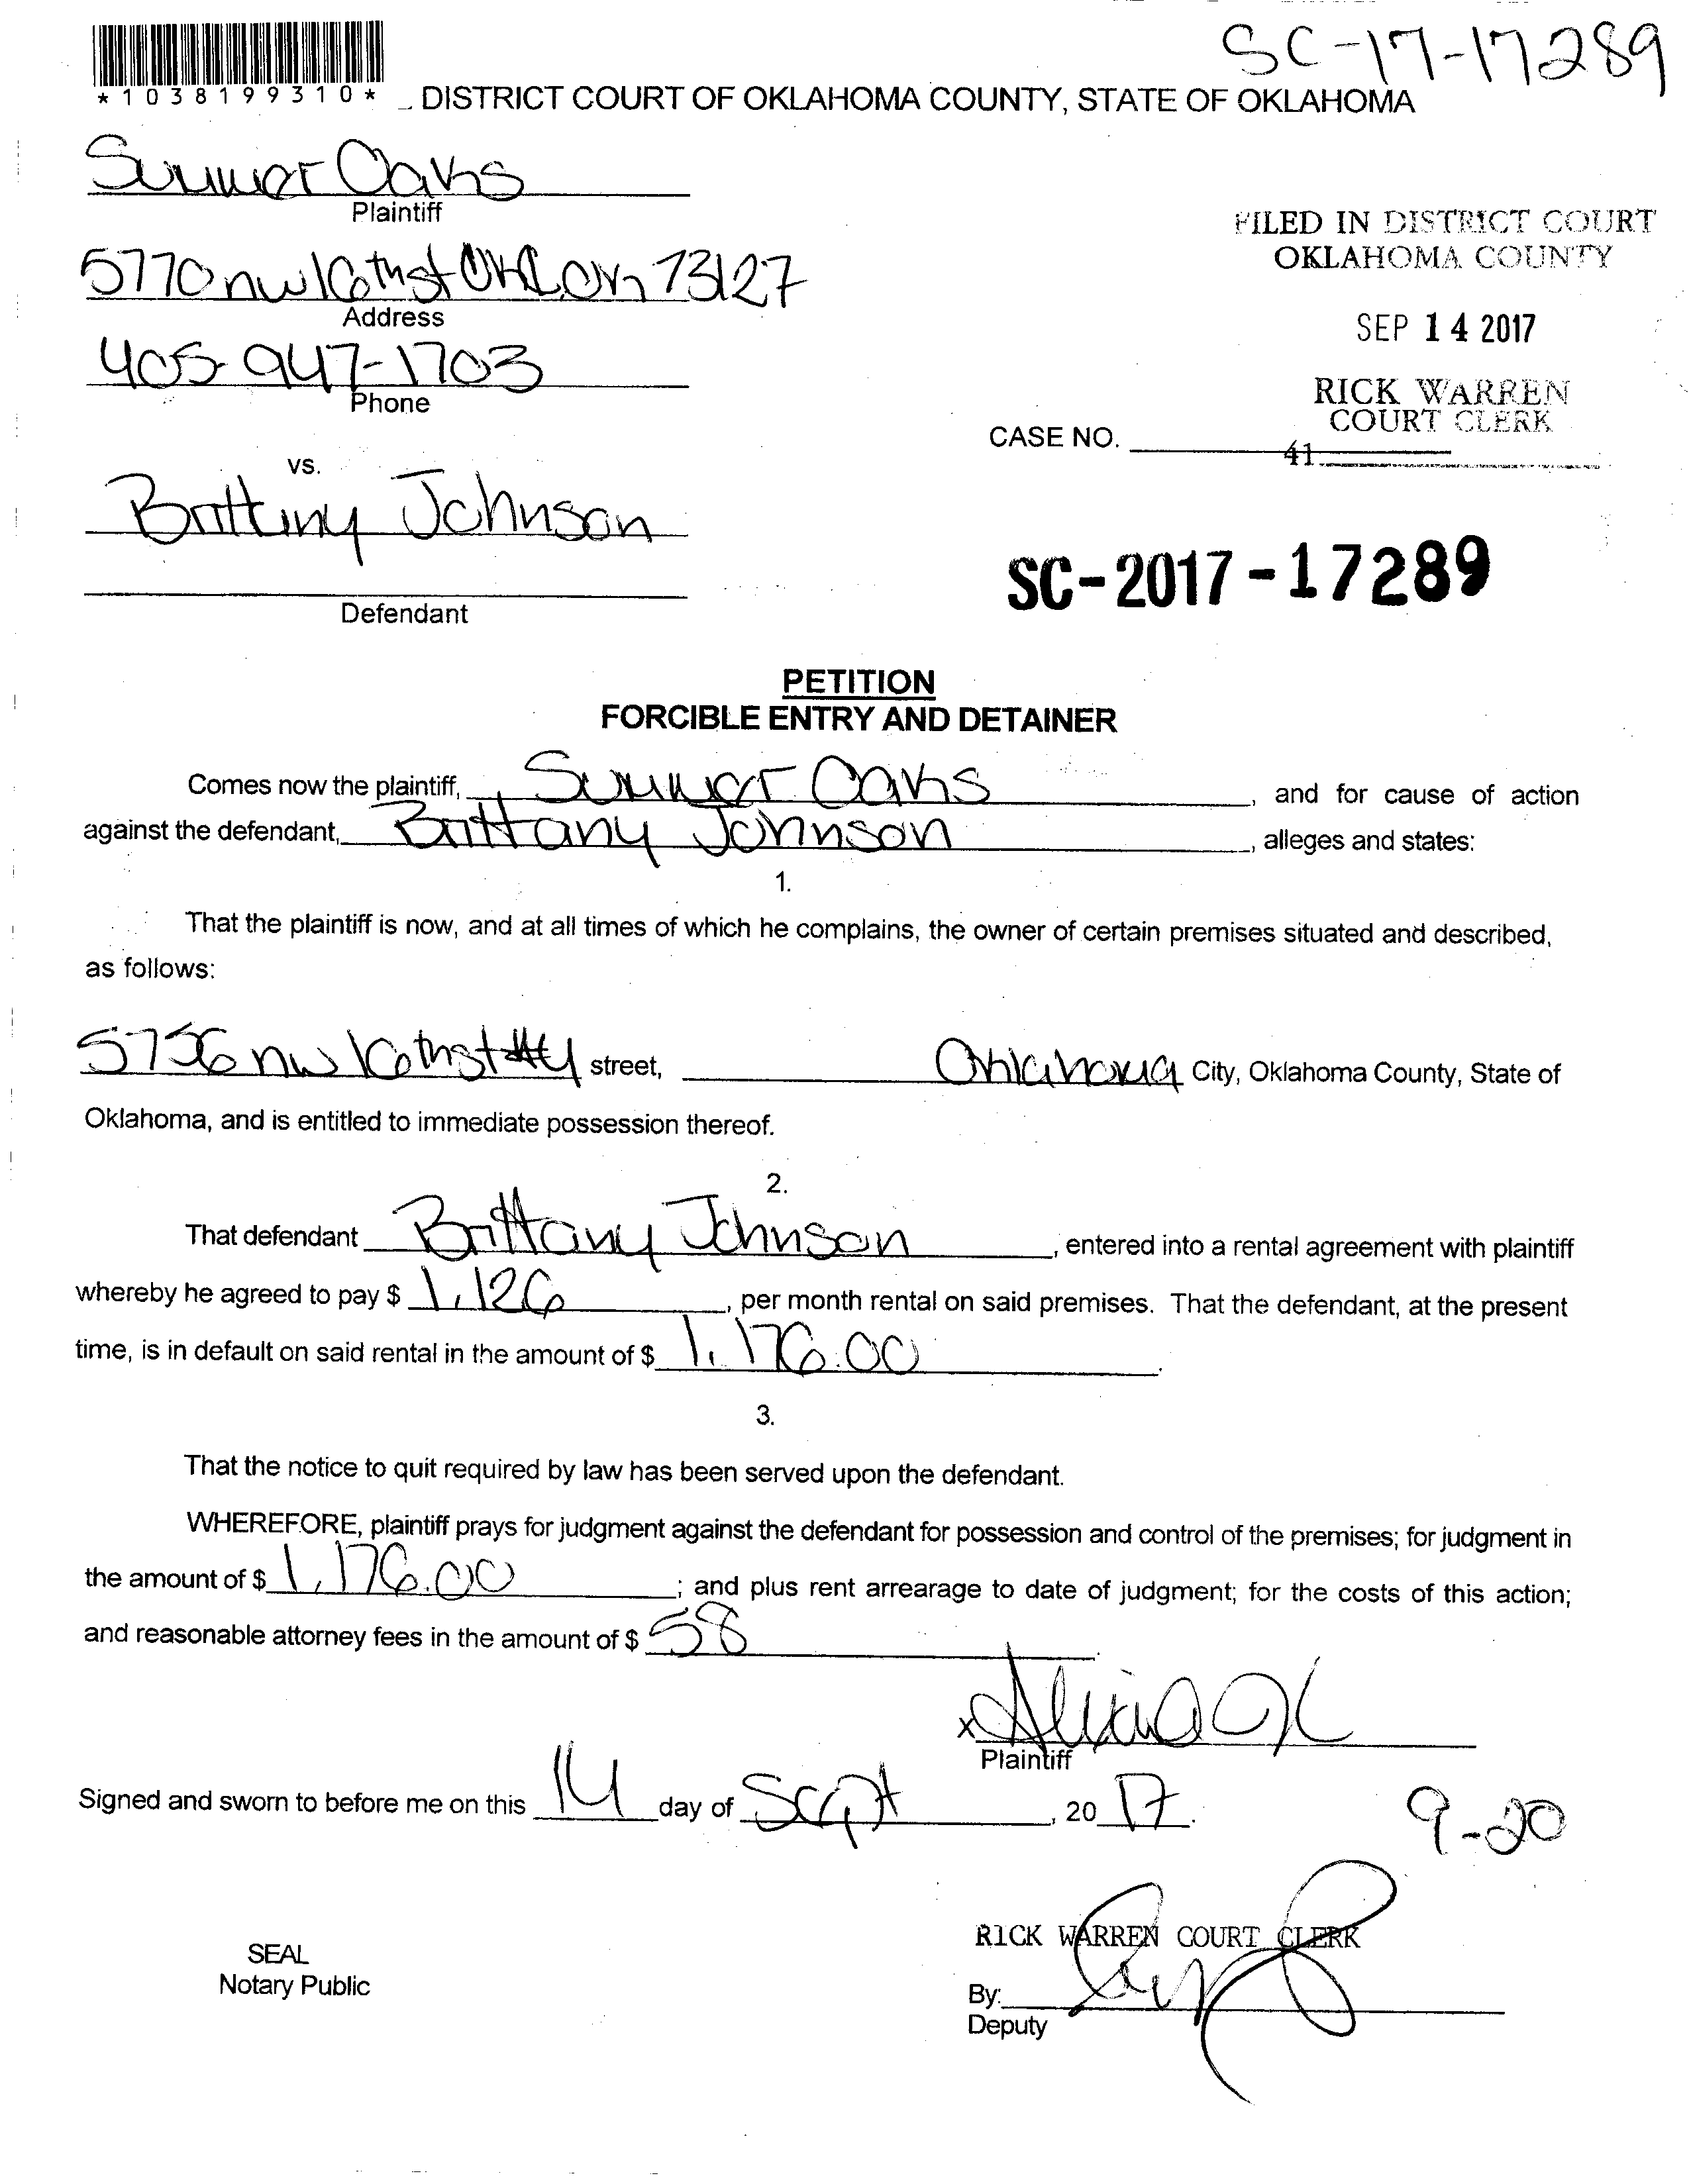 SC-17-17289
*1038199310*
DISTRICT COURT OF OKLAHOMA COUNTY, STATE OF OKLAHOMA
Summer Oaks
Plaintiff
FILED IN DISTRICT COURT
OKLAHOMA COUNTY
5770 nw 16th st OKC, OK 73127
Address
SEP 14 2017
405-947-1703
Phone
RICK WARREN
COURT CLERK
CASE NO.
41
vs.
Brittany Johnson
SC-2017-17289
Defendant
PETITION
FORCIBLE ENTRY AND DETAINER
Comes now the plaintiff, Summer Oaks, and for cause of action
against the defendant, Brittany Johnson, alleges and states:
1.
That the plaintiff is now, and at all times of which he complains, the owner of certain premises situated and described,
as follows:
5756 nw 16th st #4 street, Oklahoma City, Oklahoma County, State of
Oklahoma, and is entitled to immediate possession thereof.
2.
That defendant Brittany Johnson, entered into a rental agreement with plaintiff
whereby he agreed to pay $ 1,126, per month rental on said premises. That the defendant, at the present
time, is in default on said rental in the amount of $ 1,176.00.
3.
That the notice to quit required by law has been served upon the defendant.
WHEREFORE, plaintiff prays for judgment against the defendant for possession and control of the premises; for judgment in
the amount of $ 1,176.00; and plus rent arrearage to date of judgment; for the costs of this action;
and reasonable attorney fees in the amount of $ 58.
x
Plaintiff
Signed and sworn to before me on this 14 day of Sept, 20 17.
9-20
RICK WARREN COURT CLERK
SEAL
Notary Public
By:
Deputy